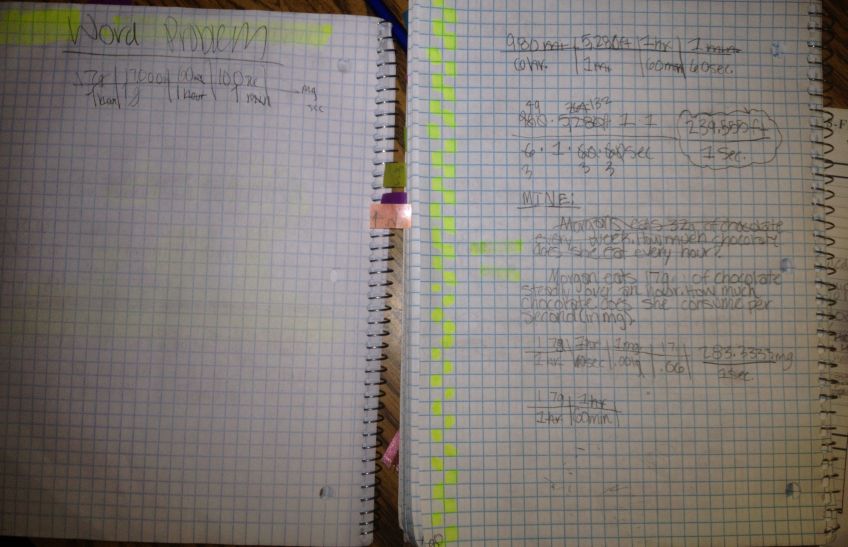 Word Problem
17g | 1000
1 hour | g | 1 hour
mg
sec
980 mi | 5,280ft | 1 hr | 1 min
6 hr. | 1 mi | 60 min | 60 sec.
49 132
980 · 5,280ft 1 1
6 · 1 · 60 · 60 sec
3 3 3
1 sec.
MINE:
Morgan eats 32g of chocolate
every week. How much chocolate
does she eat every hour?
Morgan eats 17g of chocolate
steadily over an hour. How much
chocolate does she consume per
second (in mg).
17g | 1hr | 1mg | 17
1 hr | 60sec | .001g | .06
283.3333mg
1 sec.
17g | 1hr
1hr | 60min